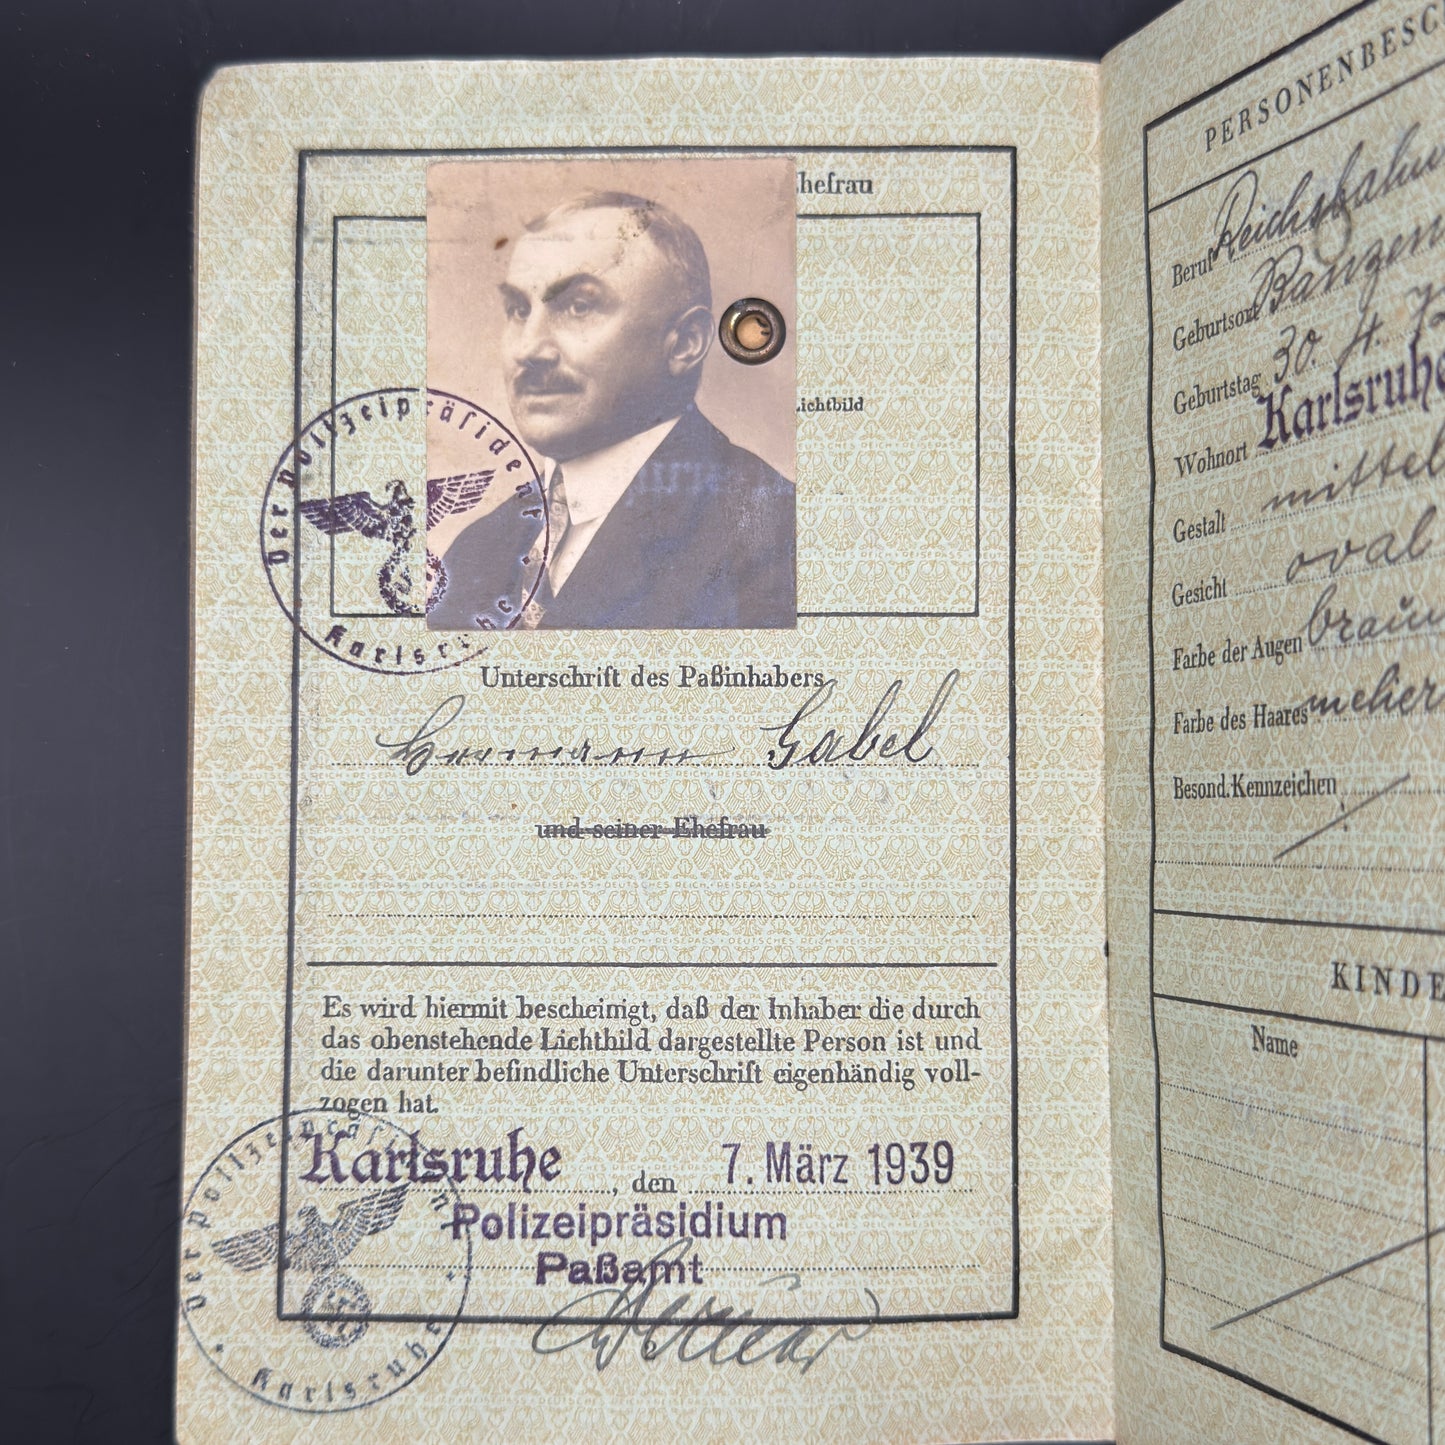 Ehefrau
Lichtbild
Der Polizeipräsident
Karlsruhe
Unterschrift des Paßinhabers
Hermann Gabel
und seiner Ehefrau
Es wird hiermit bescheinigt, daß der Inhaber die durch
das obenstehende Lichtbild dargestellte Person ist und
die darunter befindliche Unterschrift eigenhändig voll-
zogen hat.
Karlsruhe, den 7. März 1939
Polizeipräsidium
Paßamt
Der Polizeipräsident
Karlsruhe
2
PERSONENBESC
Beruf Reichsbahn
Geburtsort
Geburtstag 30. 4.
Wohnort Karlsruhe
Gestalt mittel
Gesicht oval
Farbe der Augen braun
Farbe des Haares
Besond. Kennzeichen
KINDE
Name